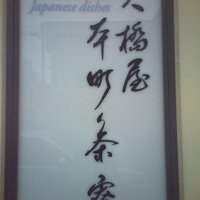 Japanese dishes
大橋屋
本町茶寮